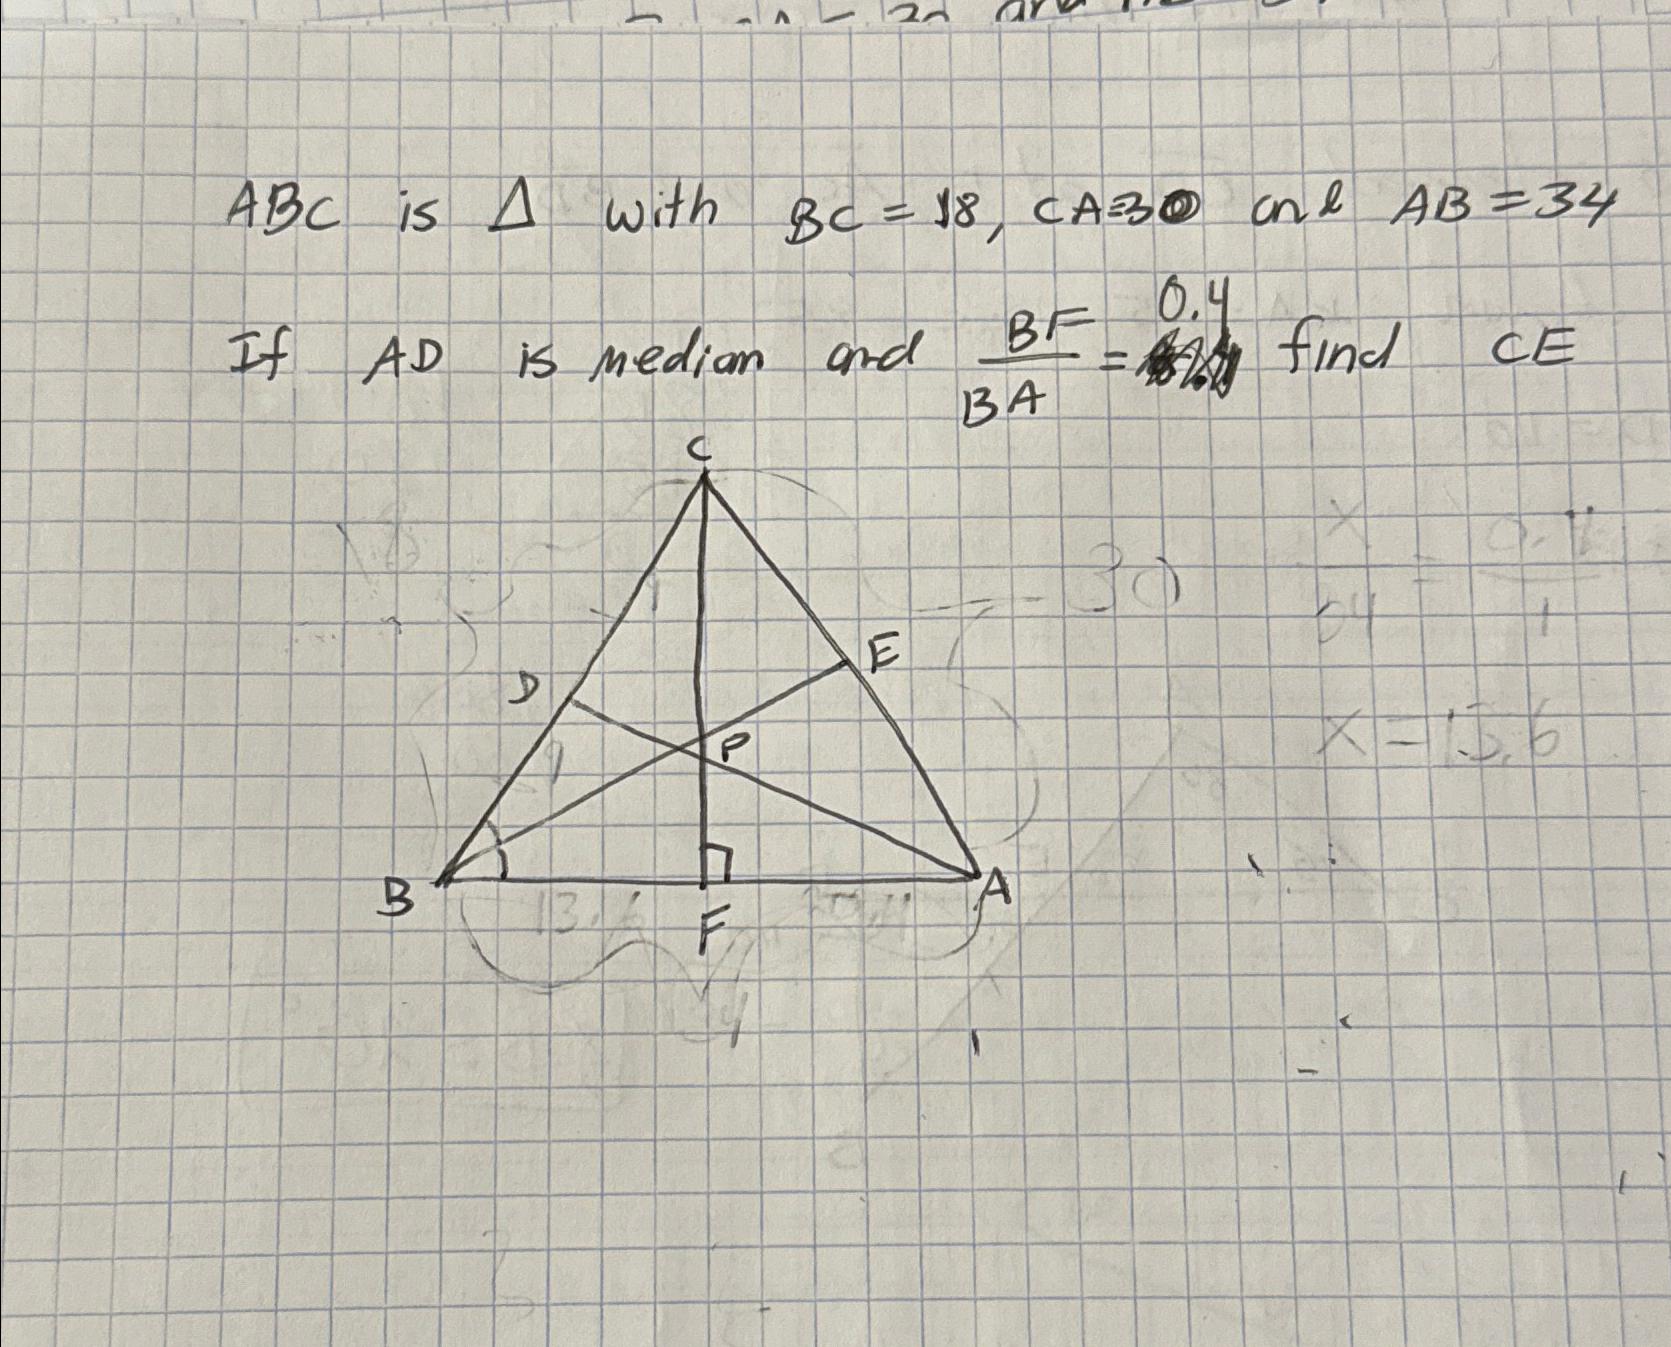 ABC is Δ with BC = 18, CA=30 and AB = 34
If AD is median and BF/BA = 0.4 find CE
C
18
30
x/34 = 0.4/1
E
D
P
9
x = 13.6
B
A
13.6
F
34